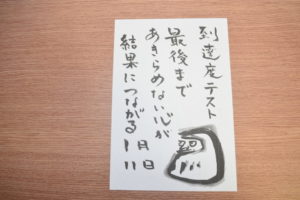 到達度テスト
最後まで
あきらめない心が
結果につながる!!
月日